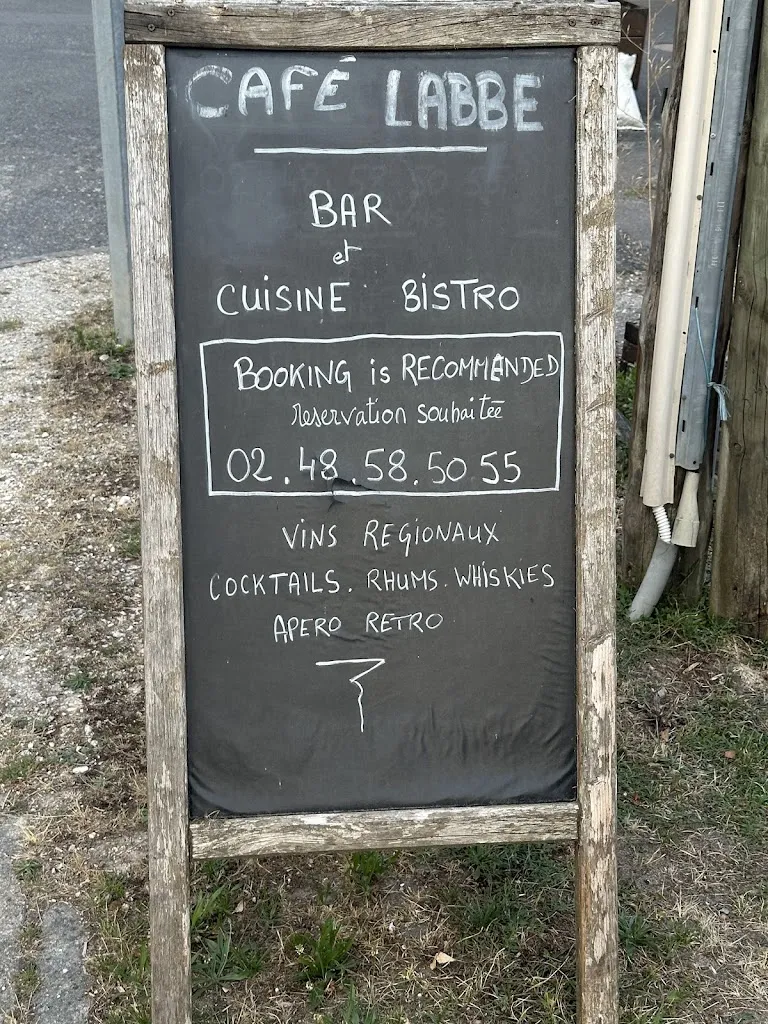 CAFÉ LABBE
BAR
et
CUISINE BISTRO
BOOKING is RECOMMENDED
reservation souhaitée
02.48.58.50 55
VINS REGIONAUX
COCKTAILS. RHUMS. WHISKIES
APERO RETRO